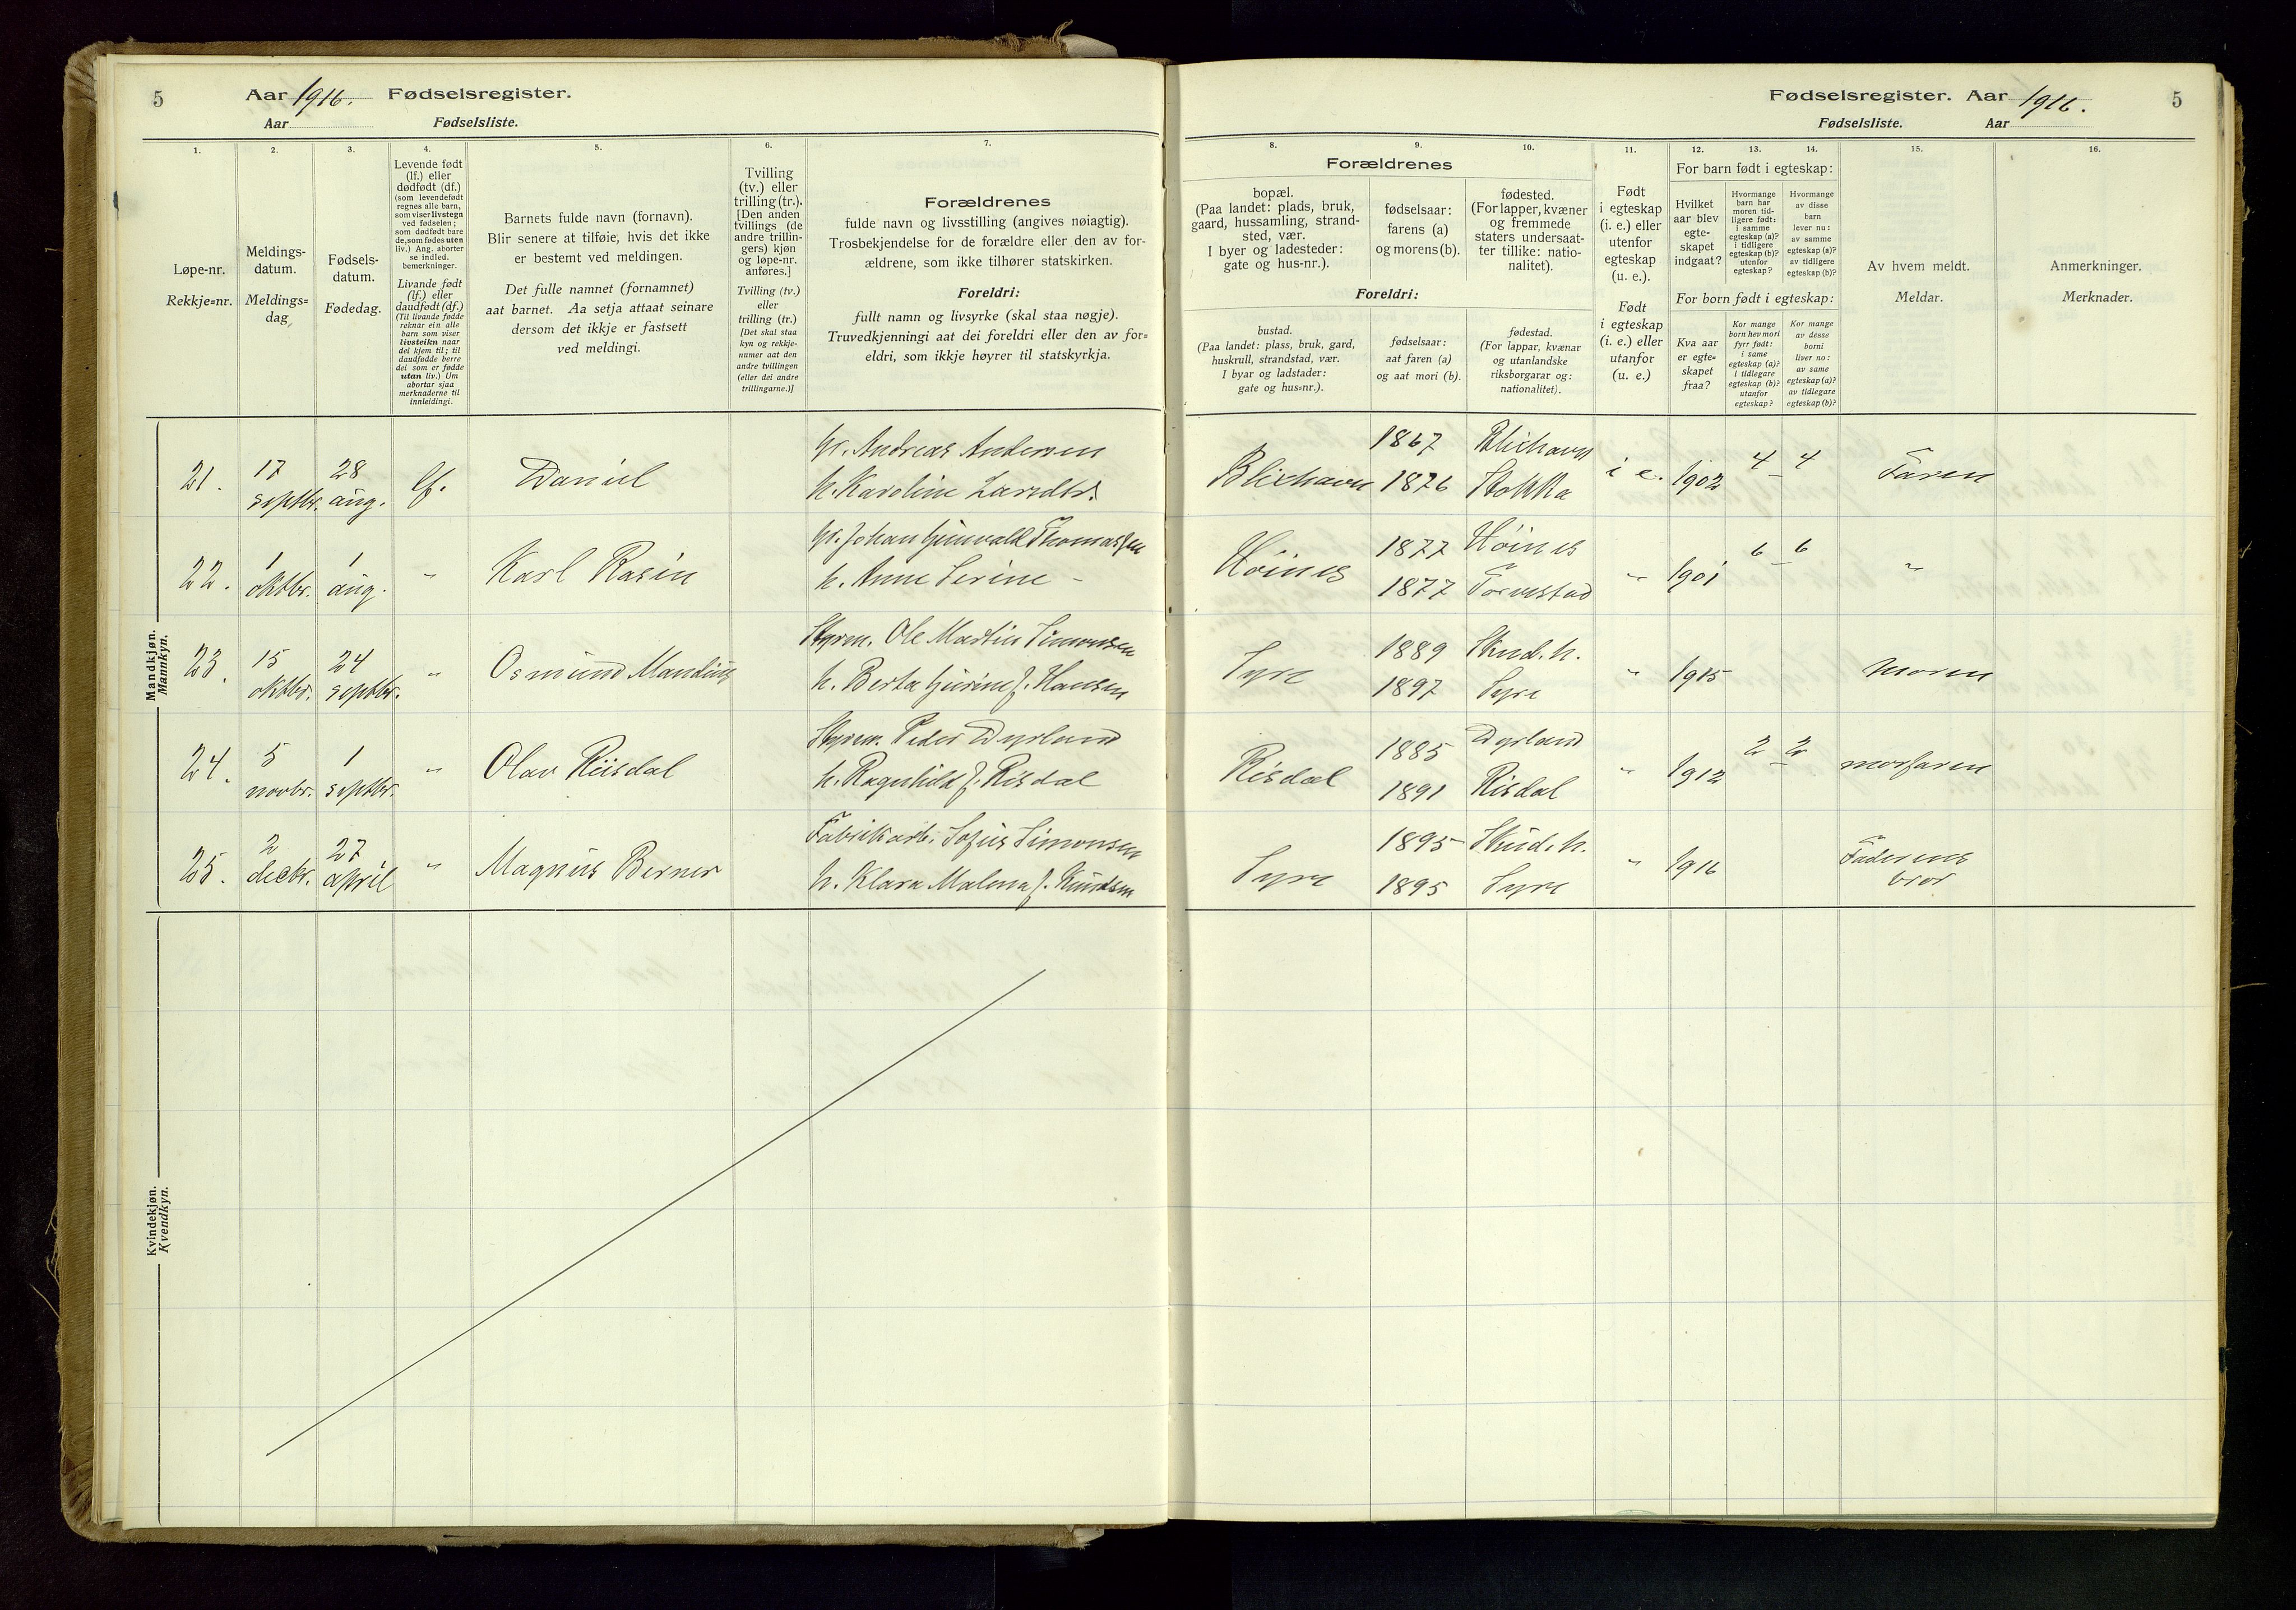 5
Aar 1916. Fødselsregister.
Aar Fødselsliste.
1.
2.
3.
4.
5.
6.
7.
Løpe-nr.
Rekkje=nr.
Meldings-
datum.
Meldings=
dag
Fødsels-
datum.
Fødedag.
Levende født
(lf.) eller
dødfødt (df.)
(som levendefødt
regnes alle barn,
som viser livstegn
ved fødselen;
som dødfødt bare
de, som fødes uten
liv.) Ang. aborter
se indled.
bemerkninger.
Livande født
(lf.) eller
daudfødt (df.)
(Til livande fødde
reknar ein alle
barn som viser
livsteikn naar
dei kjem til; til
daudfødde berre
dei som er fødde
utan liv.) Um
abortar sjaa
merknaderne til
innleidingi.
Barnets fulde navn (fornavn).
Blir senere at tilføie, hvis det ikke
er bestemt ved meldingen.
Det fulle namnet (fornamnet)
aat barnet. Aa setja attaat seinare
dersom det ikkje er fastsett
ved meldingi.
Tvilling
(tv.) eller
trilling (tr.).
[Den anden
tvillings (de
andre trillin-
gers) kjøn
og løpe-nr.
anføres.]
Tvilling (tv.)
eller
trilling (tr.)
[Det skal staa
kyn og rekkje-
numer aat den
andre tvillingen
(eller dei andre
trillingarne.)]
Forældrenes
fulde navn og livsstilling (angives nøiagtig).
Trosbekjendelse for de forældre eller den av for-
ældrene, som ikke tilhører statskirken.
Foreldri:
fullt namn og livsyrke (skal staa nøgje).
Truvedkjenningi aat dei foreldri eller den av for=
eldri, som ikkje høyrer til statskyrkja.
Mandkjøn.
Mannkyn.
21. 17 septbr. 28 aug. lf. Daniel
Gr. Andreas Andersen
h. Karoline Larsdtr.
22. 1 oktbr. 1 aug. " Karl Rasin
Gr. Johan Gunvald Thomassen
h. Anne Serine -
23. 15 oktbr. 24 septbr. " Osmund Mandius
Styrm. Ole Martin Simonsen
h. Berta Gurine f. Hansen
24. 5 novbr. 1 septbr. " Olav Riisdal
Styrm. Peder Dyrland
h. Ragnhild f. Risdal
25. 2 decbr. 27 april " Magnus Berner
Fabrikarb. Sofus Simonsen
h. Klara Malena f. Knudsen
Kvindekjøn.
Kvendkyn.
Fødselsregister. Aar 1916. 5
Fødselsliste. Aar
8.
9.
10.
11.
12.
13.
14.
15.
16.
Forældrenes
bopæl.
(Paa landet: plads, bruk,
gaard, hussamling, strand-
sted, vær.
I byer og ladesteder:
gate og hus-nr.).
fødselsaar:
farens (a)
og morens (b).
fødested.
(For lapper, kvæner
og fremmede
staters undersaat-
ter tillike: natio-
nalitet).
Foreldri:
bustad.
(Paa landet: plass, bruk, gard,
huskrull, strandstad, vær.
I byar og ladstader:
gate og hus=nr.).
fødselsaar:
aat faren (a)
og aat mori (b).
fødestad.
(For lappar, kvænar
og utanlandske
riksborgarar og:
nationalitet).
Født
i egteskap
(i. e.) eller
utenfor
egteskap
(u. e.).
Født
i egteskap
(i. e.) eller
utanfor
(u. e.)
For barn født i egteskap:
Hvilket
aar blev
egte-
skapet
indgaat?
Hvormange
barn har
moren tid-
ligere født:
i samme
egteskap (a)?
i tidligere
egteskap (b)?
utenfor
egteskap?
Hvormange
av disse
barn
lever nu:
av samme
egteskap (a)?
av tidligere
egteskap (b)?
For born født i egteskap:
Kva aar
er egte=
skapet
fraa?
Kor mange
born hev mori
fyrr født:
i same
egteskap (a)?
i tidlegare
egteskap (b)?
utanfor
egteskap?
Kor mange
av desse
borni
liver no:
av same
egteskap (a)?
av tidlegare
egteskap (b)?
Av hvem meldt.
Meldar.
Anmerkninger.
Merknader.
Blixhavn 1867 Blixhavn
1876 Stokka
i e. 1902 4 - 4 Faren
Höines 1877 Höines
1877 Tornestad
" 1901 6 - 6 "
Syre 1889 Skud.h.
1897 Syre
" 1915 Moren
Risdal 1885 Dyrland
1891 Risdal
" 1912 2 - 2 morfaren
Syre 1895 Skud.h.
1895 Syre
" 1916 Faderens
bror